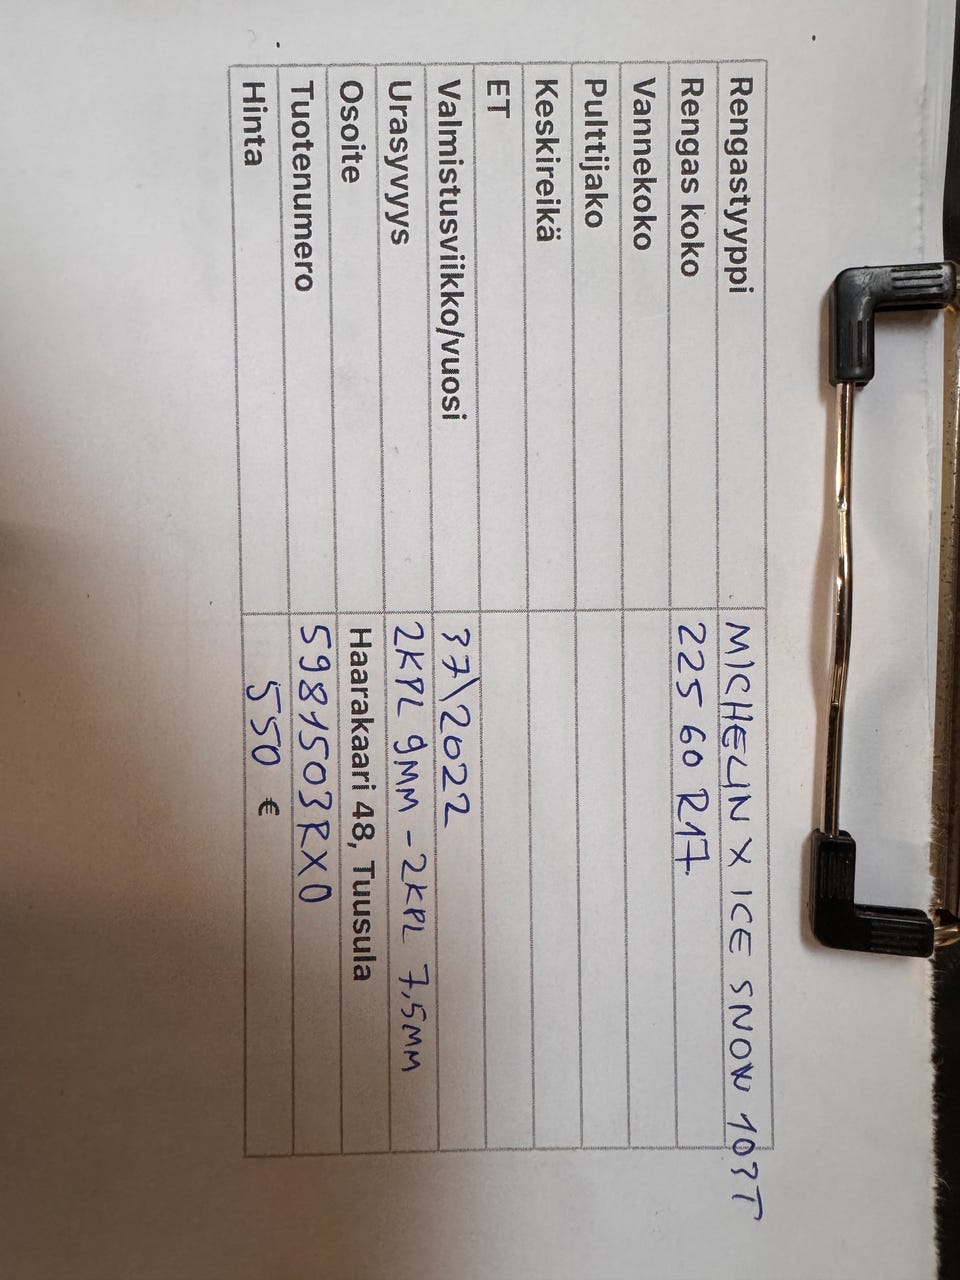 Rengastyyppi MICHELIN X ICE SNOW 103T
Rengas koko 225 60 R17
Vannekoko
Pulttijako
Keskireikä
ET
Valmistusviikko/vuosi 37\2022
Urasyvyys 2KPL 9MM - 2KPL 7,5MM
Osoite Haarakaari 48, Tuusula
Tuotenumero 5981503RXO
Hinta 550 €